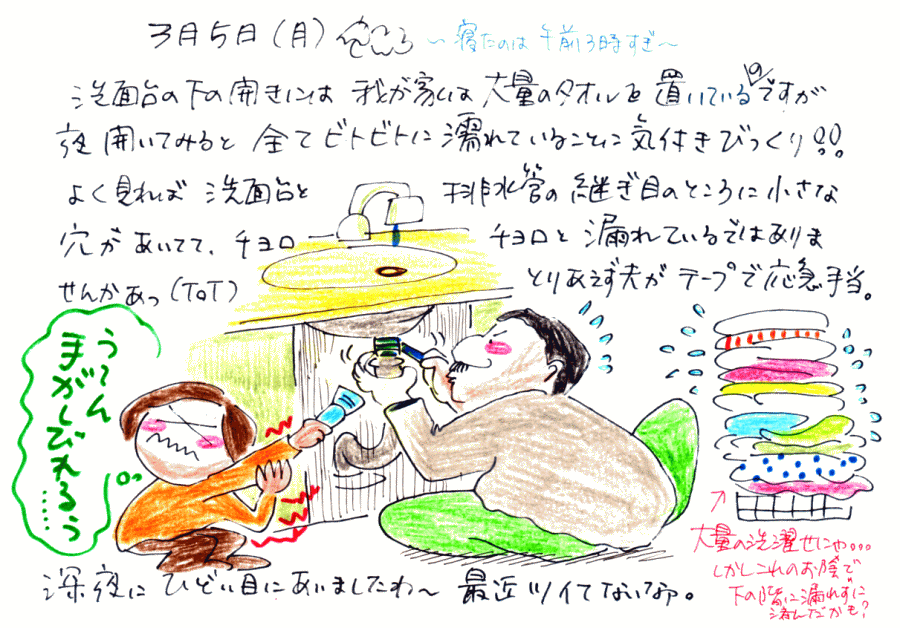 3月5日(月)
〜寝たのは午前3時すぎ〜
洗面台の下の開きには我が家は大量のタオルを置いているのですが
夜開いてみると全てビトビトに濡れていることに気付きびっくり!!
よく見れば洗面台と排水管の継ぎ目のところに小さな
穴があいてて、チョロチョロと漏れているではありま
せんかあっ(ToT)とりあえず夫がテープで応急手当。
う〜ん
手がしびれるぅ
……
大量の洗濯せにゃ…
しかしこれのお陰で
下の階に漏れずに
済んだかも?
深夜にひどい目にあいましたわ〜最近ツイてないなぁ。